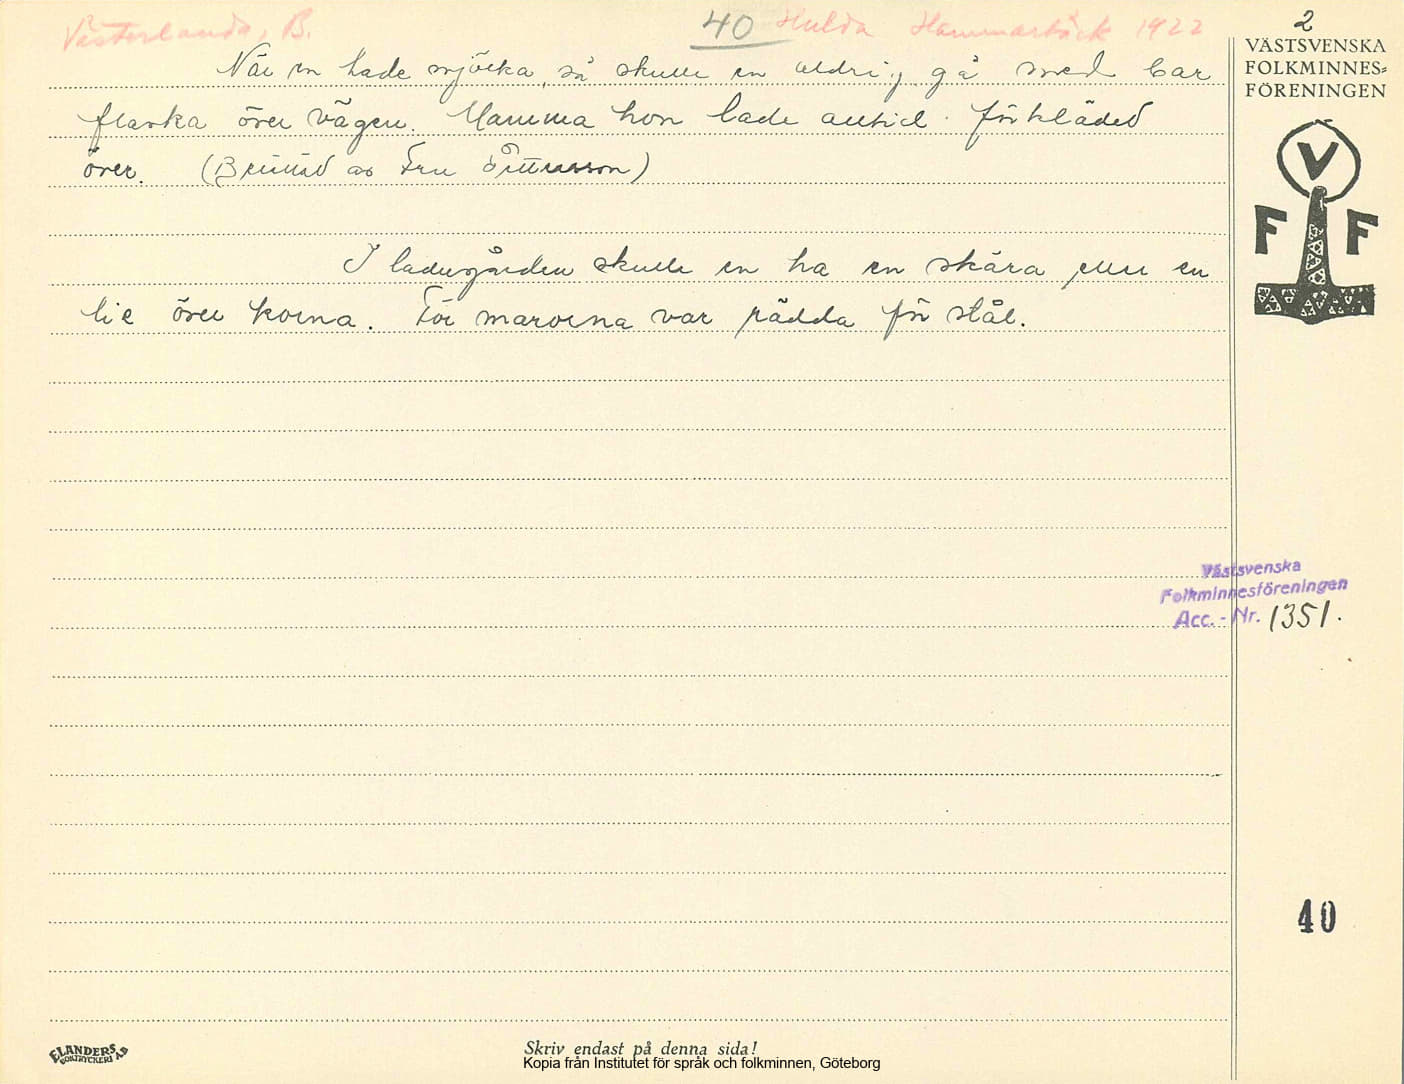 Västerlanda, B.
40
Hulda Hammarbäck 1922
2
När en hade mjölka, så skulle en aldrig gå med bar
flaska över vägen. Mamma hon lade alltid förklädet
över. (Berättad av Fru Pettersson)
I ladugården skulle en ha en skära eller en
lie över korna. För marorna var rädda för stål.
VÄSTSVENSKA
FOLKMINNES=
FÖRENINGEN
V
F F
Västsvenska
Folkminnesföreningen
Acc. - Nr. 1351.
40
ELANDERS
BOKTRYCKERI AB
Skriv endast på denna sida!
Kopia från Institutet för språk och folkminnen, Göteborg